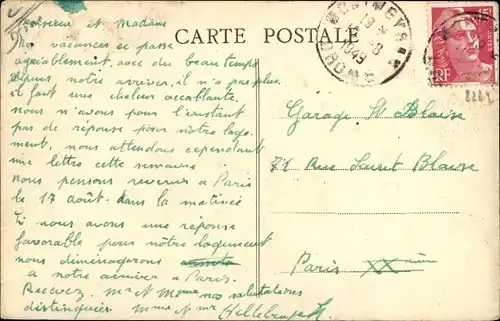 Monsieur et Madame
Nos vacances ce passe
agréablement, avec du beau temps
Depuis notre arriver, il n'a pas plus.
il fait une chaleur accablante,
nous n'avons pour l'instant
pas de réponse pour notre loge
ment, nous attendons cependant
une lettre cette semaine
nous pensons revenir a Paris
le 17 août. dans la matinée
Si nous avons une réponse
favorable pour nôtre logement
nous déménagerons
a notre arriver a Paris.
Recevez, Mr et Mme nos salutations
distinguées. Mme et Mr
CARTE POSTALE
1949
NORD
15
RF
Garage St Blaise
71 Rue Saint Blaise
Paris XXème